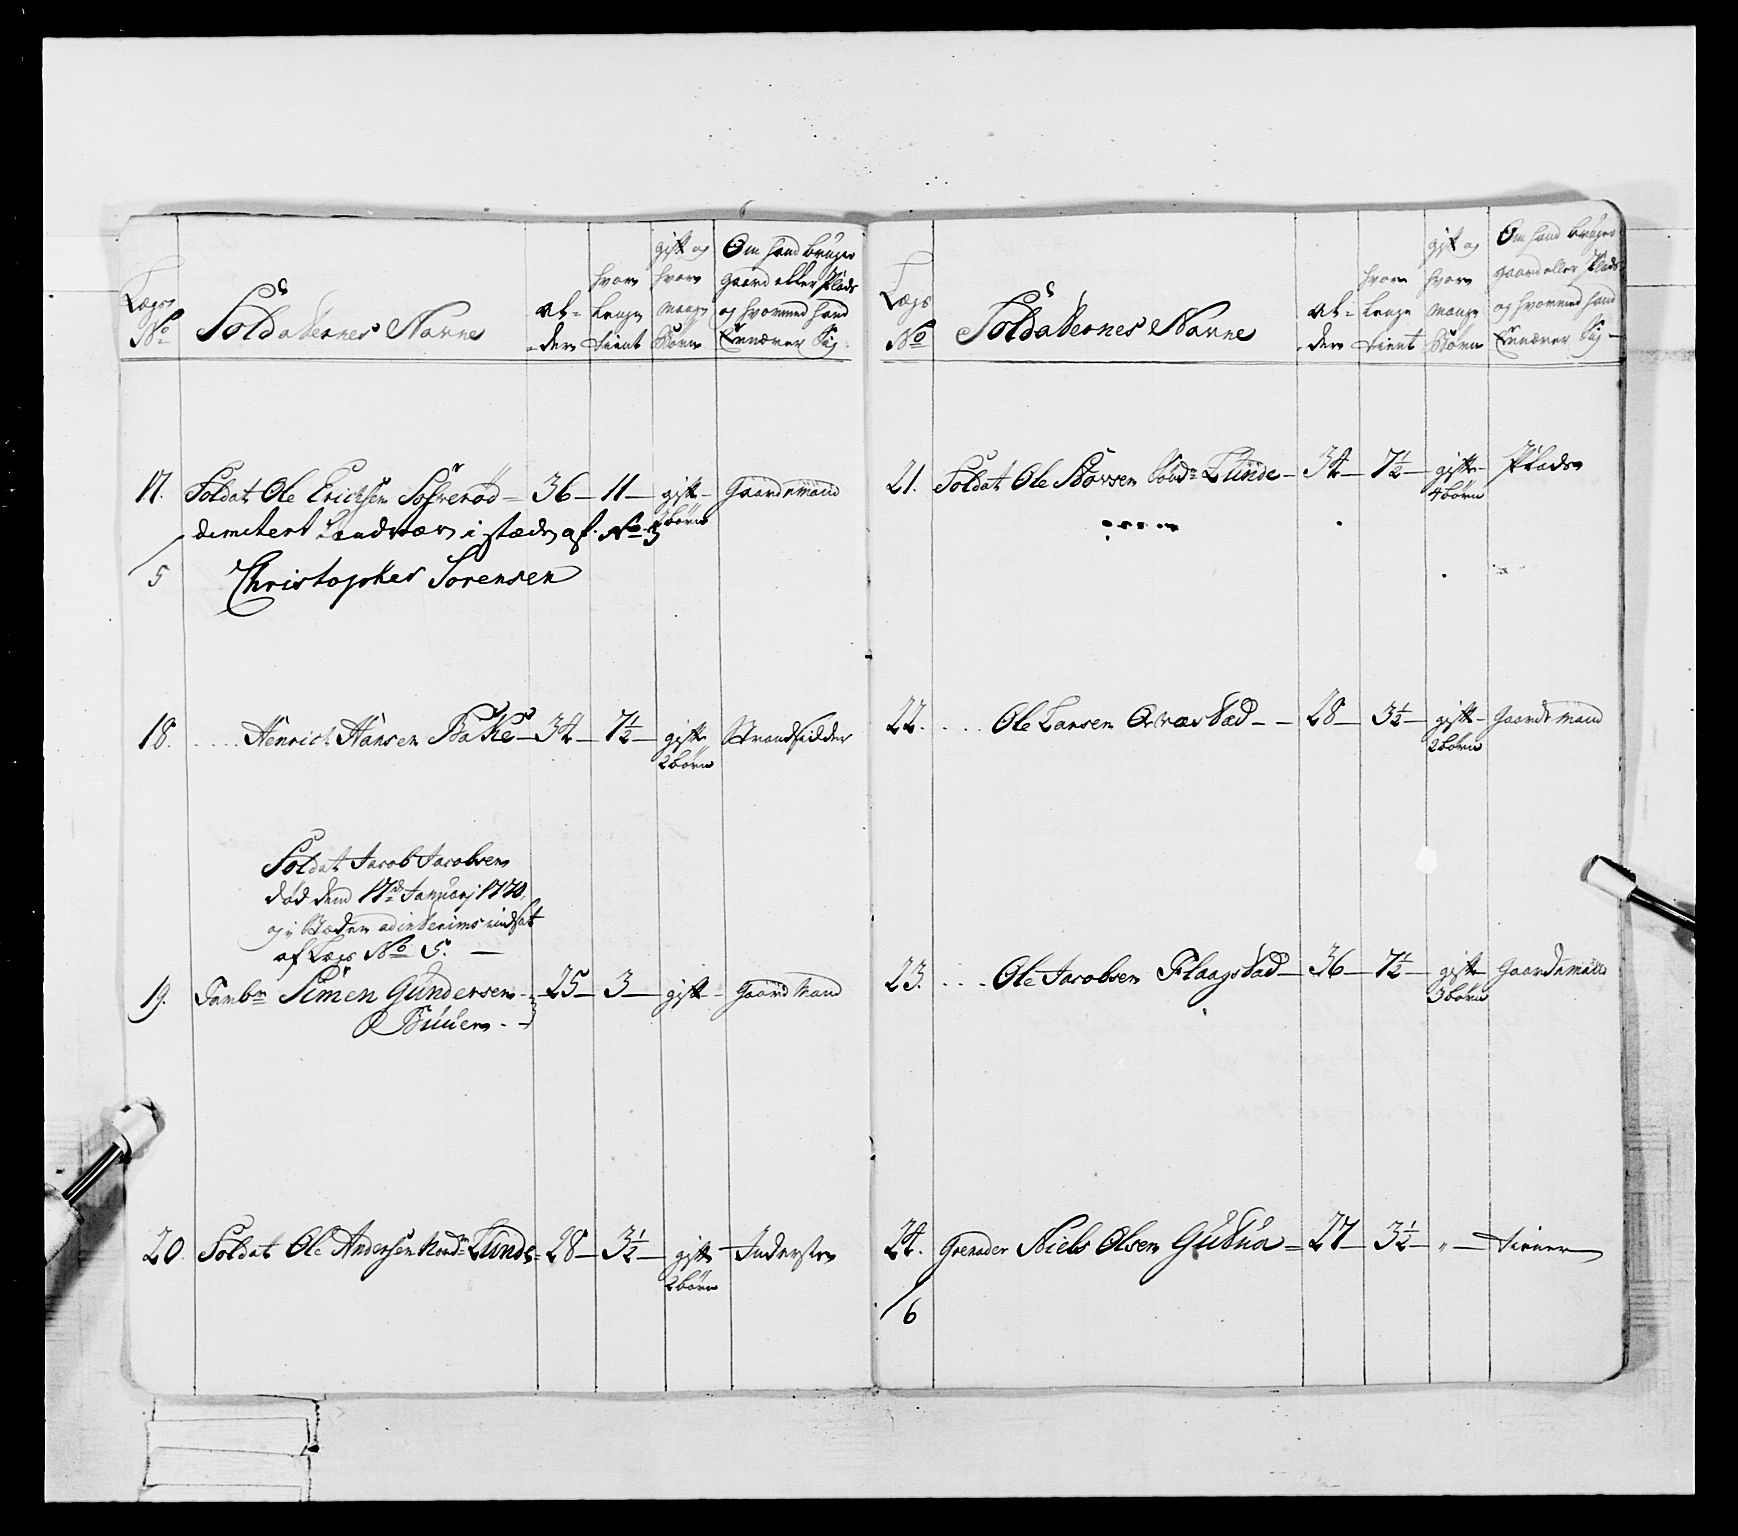 Lægs No
Soldaternes Navne
Al= der
hvor Lenge tient
gift og hvor mange Børn
Om hand bruger gaard eller Plads og hvormed hand Ernærer Sig
17. Soldat Ole Erichsen Sofverød 36 11 gift børn Gaardemand
dimitert Landvær i stæden af No 5
5 Christopher Sorensen
18. Henrich Hansen Bakke 34 7½ gift 2 børn Strandsidder
Soldat Jacob Jacobsen
død dend 17de Januarj 1770
og i Stæden ad interims indsat
af Læg No 5.
19. Tambr Simen Gundersen 25 3 gift Gaard Mand
Buuen
20. Soldat Ole Andersen Nord Lunde 28 3½ gift 2 børn Inderste
Lægs No
Soldaternes Navne
Al= der
hvor Lenge tient
gift og hvor mange Børn
Om hand bruger gaard eller Plads og hvormed hand Ernærer Sig
21. Soldat Ole Størsen Lunde 34 7½ gift 4 børn Plads
22. Ole Larsen 28 3½ gift 2 børn Gaardemand
23. Ole Jacobsen Flaagstad 36 7½ gift 3 børn Gaardemand
24. Grenader Niels Olsen Gubua 27 3½ " tiener
6